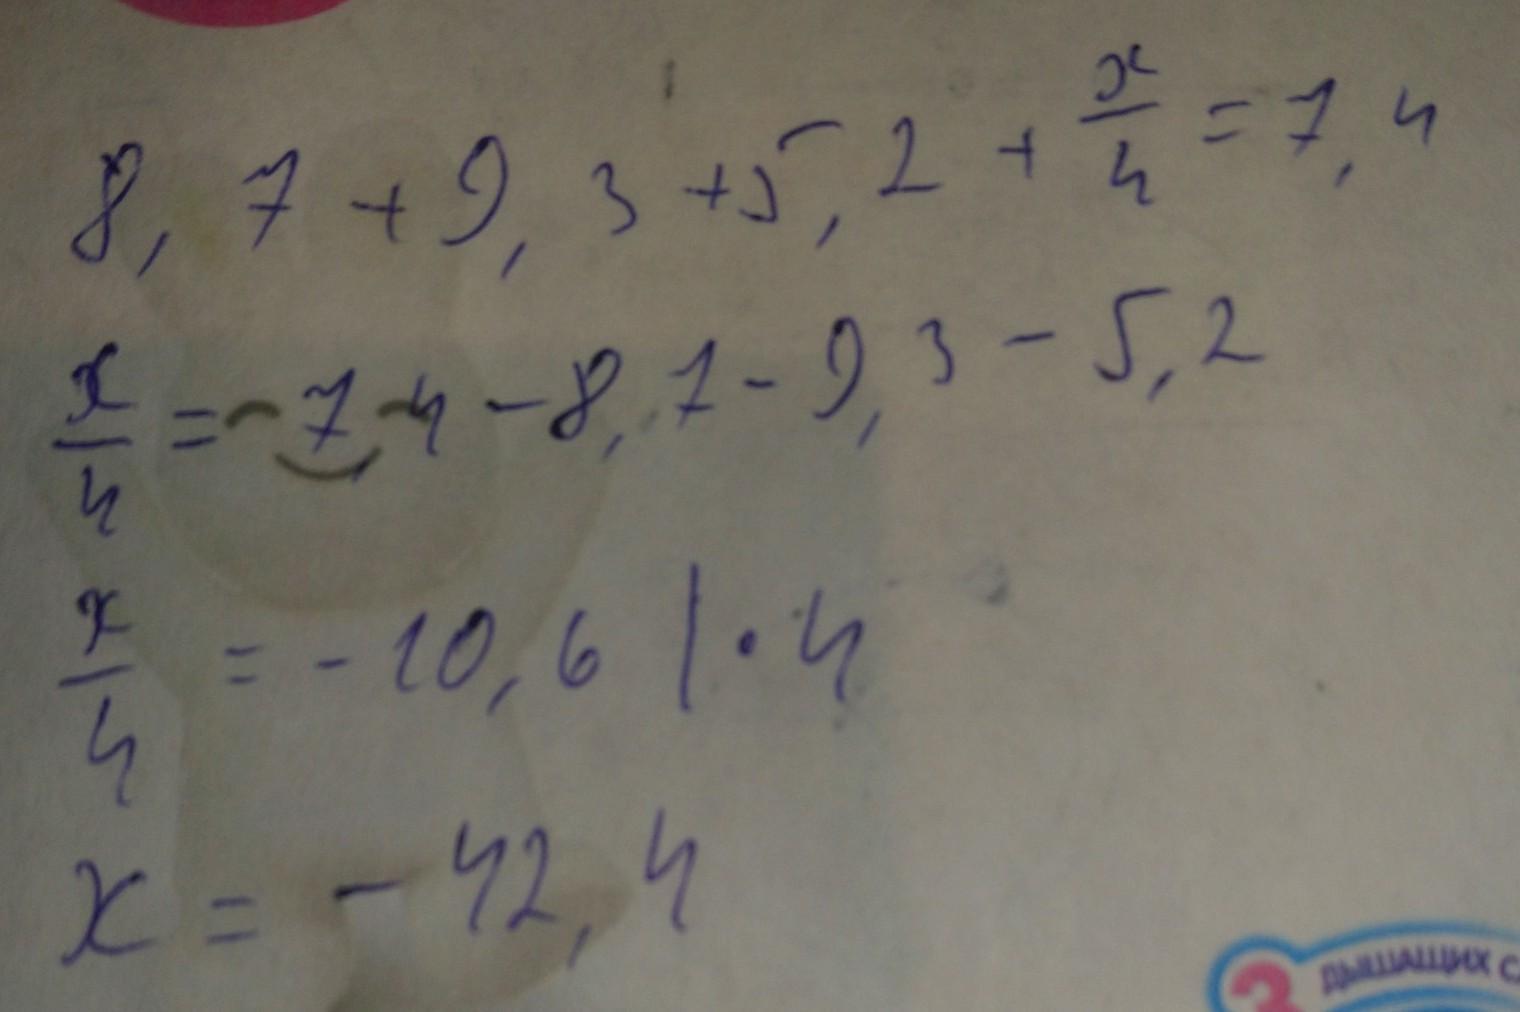 8,7+9,3+5,2+x/4=7,4
x/4=7,4-8,7-9,3-5,2
x/4=-10,6 |·4
x=-42,4
3 ДЫШАЩИХ